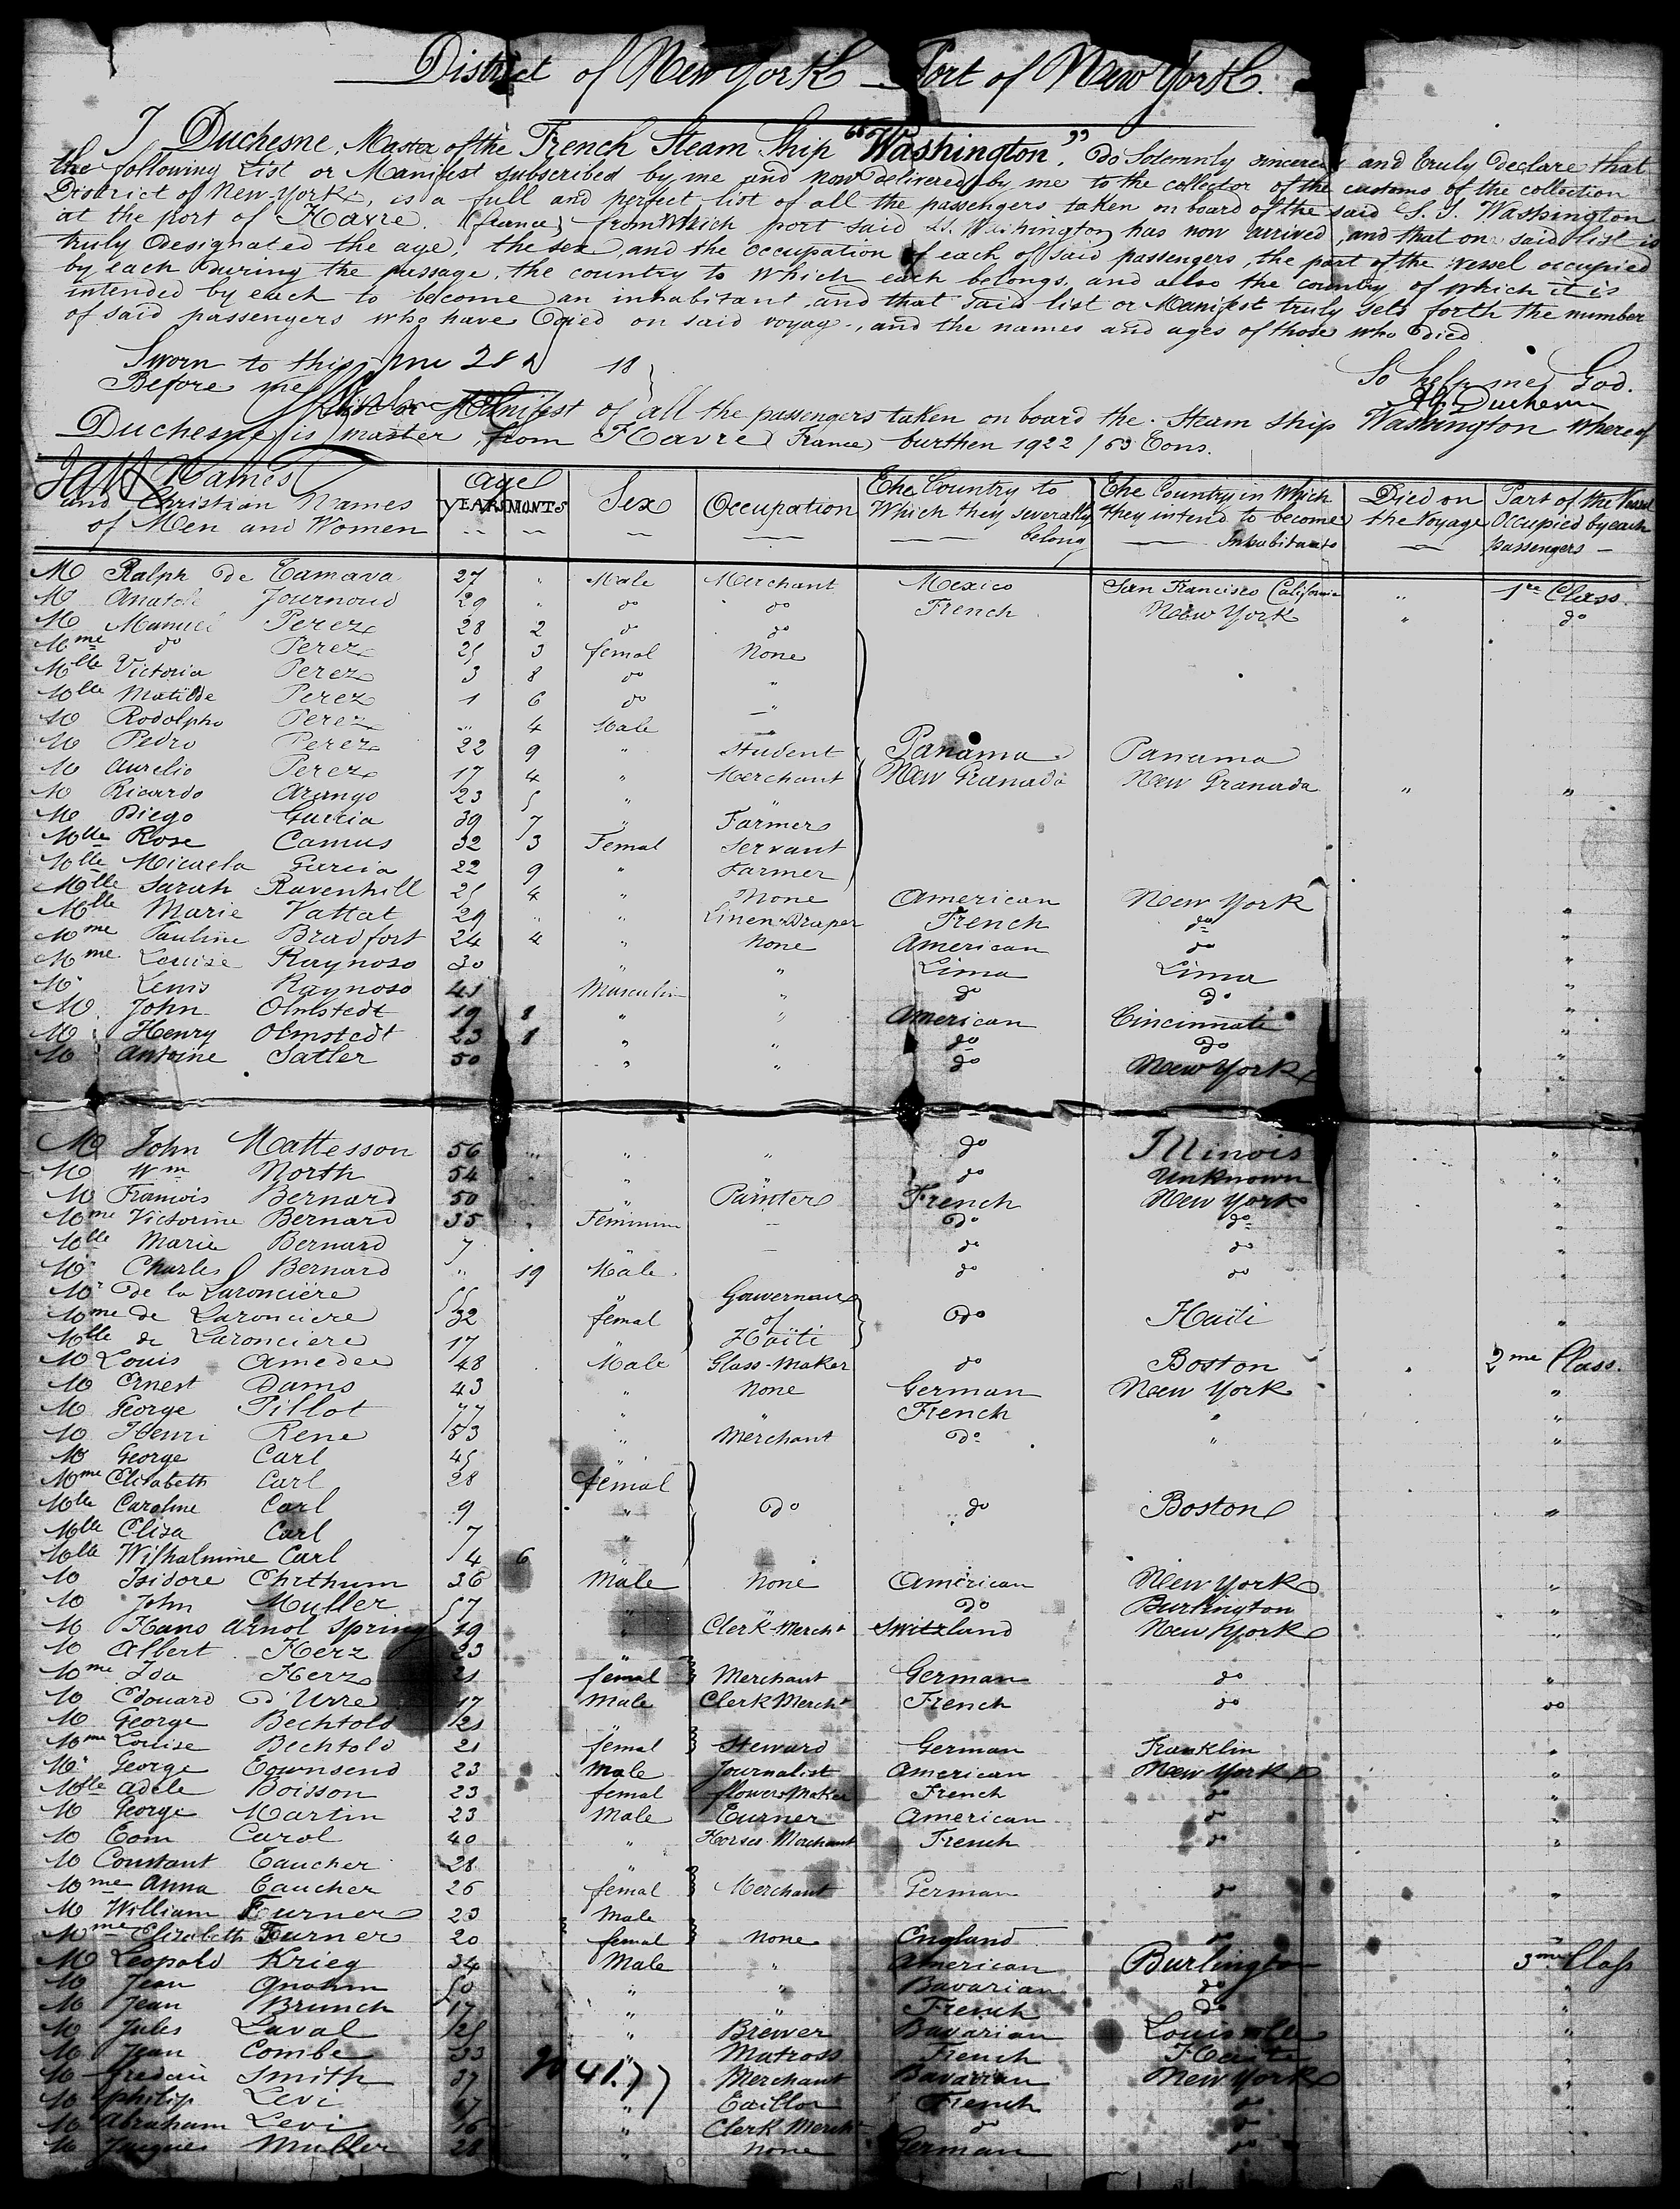 District of New York — Port of New York.
I Duchesne, Master of the French Steam Ship "Washington", do Solemnly sincerely and truly Declare that
the following List or Manifest subscribed by me and now delivered by me to the collector of the customs of the collection
District of New-York, is a full and perfect list of all the passengers taken on board of the said S. S. Washington
at the port of Havre (france) from which port said S.S. Washington has now arrived, and that on said list is
truly designated the age, the sex, and the occupation of each of said passengers, the part of the vessel occupied
by each during the passage, the country to which each belongs, and also the country of which it is
intended by each to become an inhabitant and that said list or Manifest truly sets forth the number
of said passengers who have died on said voyage, and the names and ages of those who died
Sworn to this June 28 18
Before me
So help me God.
Duchesne
Manifest of all the passengers taken on board the Steam Ship Washington whereof
Duchesne is master, from Havre (France) burthen 1922/63 Tons.
Names and Christian Names of Men and Women Age YEARS MONTS Sex Occupation The Country to Which they severally belong The Country in Which they intend to become Inhabitants Died on the Voyage Part of the Vessel Occupied by each passengers
M Ralph de Tamava 27 " Male Merchant Mexico San Francisco California " 1re Class
M Anatole Journoud 29 " do do French New York " do
M Manuel Perez 28 2 do do
Mme do Perez 25 3 femal None
Mlle Victoria Perez 3 8 do "
Mlle Matilde Perez 1 6 do "
M Rodolpho Perez " 4 Male
M Pedro Perez 22 9 " Student Panama Panama
M Aurelio Perez 17 4 " Merchant New Granada New Granada " "
M Ricardo Arango 23 5 " "
M Diego Garcia 39 7 " Farmers
Mlle Rose Camus 32 3 Femal Servant
Mlle Micaela Garcia 22 9 " Farmer
Mlle Sarah Ravenhill 25 4 " None American New York
Mlle Marie Vattat 29 " " Linen Draper French do "
Mme Pauline Bradfort 24 4 " None American do "
Mme Louise Raynoso 30 " " Lima Lima "
M Lewis Raynoso 41 Masculin " do do "
M John Olmstedt 19 8 " " American Cincinnate "
M Henry Olmstedt 23 8 " " do do "
M Antoine Satler 50 " " do New York "
M John Mattesson 56 " " " do Illinois "
M Wm North 54 " " " do Unknown "
M Francois Bernard 50 " " Painter French New York "
Mme Victorine Bernard 35 " Feminin do do "
Mlle Marie Bernard 7 do do "
M Charles Bernard " 19 Male do do "
Mr de la Laronciere 55 " Gouverneur
Mme de Laronciere 32 femal of do Haïti "
Mlle de Laronciere 17 Haïti
M Louis Amedee 48 Male Glass-Maker do Boston 2me Class.
M Ernest Dams 43 " None German New York "
M George Pillot 77 " " French " "
M Henri Rene 53 " Merchant do "  "
M George Carl 45 "
Mme Elisabeth Carl 28 femal
Mlle Caroline Carl 9 " do do Boston "
Mlle Elisa Carl 7 "
Mlle Wilhalmine Carl 4 6
M Isidore Chrthum 36 Male None American New York "
M John Muller 57 " " do Burlington "
M Hans Arnol Spring 19 " Clerk-Mercht Switzland New York "
M Albert Herz 23 "
Mme Ida Herz 21 femal Merchant German do "
M Edouard d'Urre 17 Male Clerk Mercht French do do
M George Bechtold 21 "
Mme Louise Bechtold 21 femal Steward German Franklin "
M George Townsend 23 Male Journalist American New York "
Mlle Adele Boisson 23 femal flowers Maker French do "
M George Martin 23 Male Turner American do "
M Tom Carol 40 " Horses Merchant French do "
M Constant Taucher 28 "
Mme Anna Taucher 26 femal Merchant German do "
M William Turner 23 Male
Mme Elizabeth Turner 20 femal None England do
M Leopold Krieg 34 Male " American Burlington 3me Class
M Jean Gnahm 50 " " Bavarian do "
M Jean Brunch 17 " " French do "
M Jules Laval 25 " Brewer Bavarian Louisville "
M Jean Combe 33 " Matross French Haiti "
M Smith 37 Merchant Bavarian New York "
M philip Levi 17 " Taillor French do "
M Abraham Levi 16 " Clerk Mercht do do "
M Jacques Muller 28 " None German do